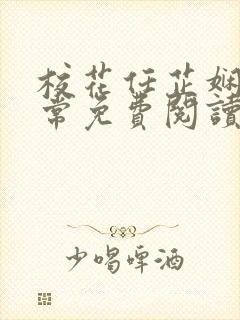 校花任芷娴
常免費閱讀
少喝啤酒